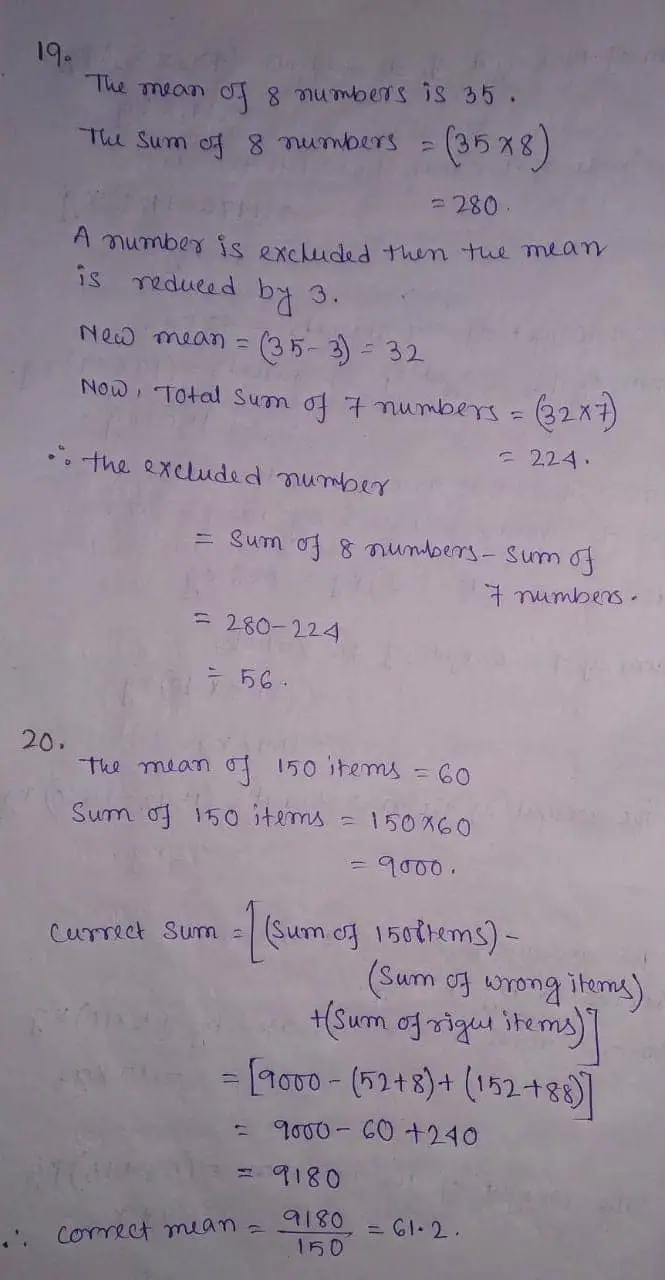 19.
The mean of 8 numbers is 35.
The sum of 8 numbers = (35 × 8)
= 280.
A number is excluded then the mean
is reduced by 3.
New mean = (35-3) = 32
Now, Total sum of 7 numbers = (32×7)
= 224.
∴ the excluded number
= sum of 8 numbers - sum of
7 numbers.
= 280-224
= 56.
20.
The mean of 150 items = 60
Sum of 150 items = 150×60
= 9000.
Currect sum = [(Sum of 150 items) -
(Sum of wrong items)
+(Sum of right items)]
= [9000 - (52+8) + (152+88)]
= 9000 - 60 + 240
= 9180
∴ correct mean = 9180/150 = 61.2.